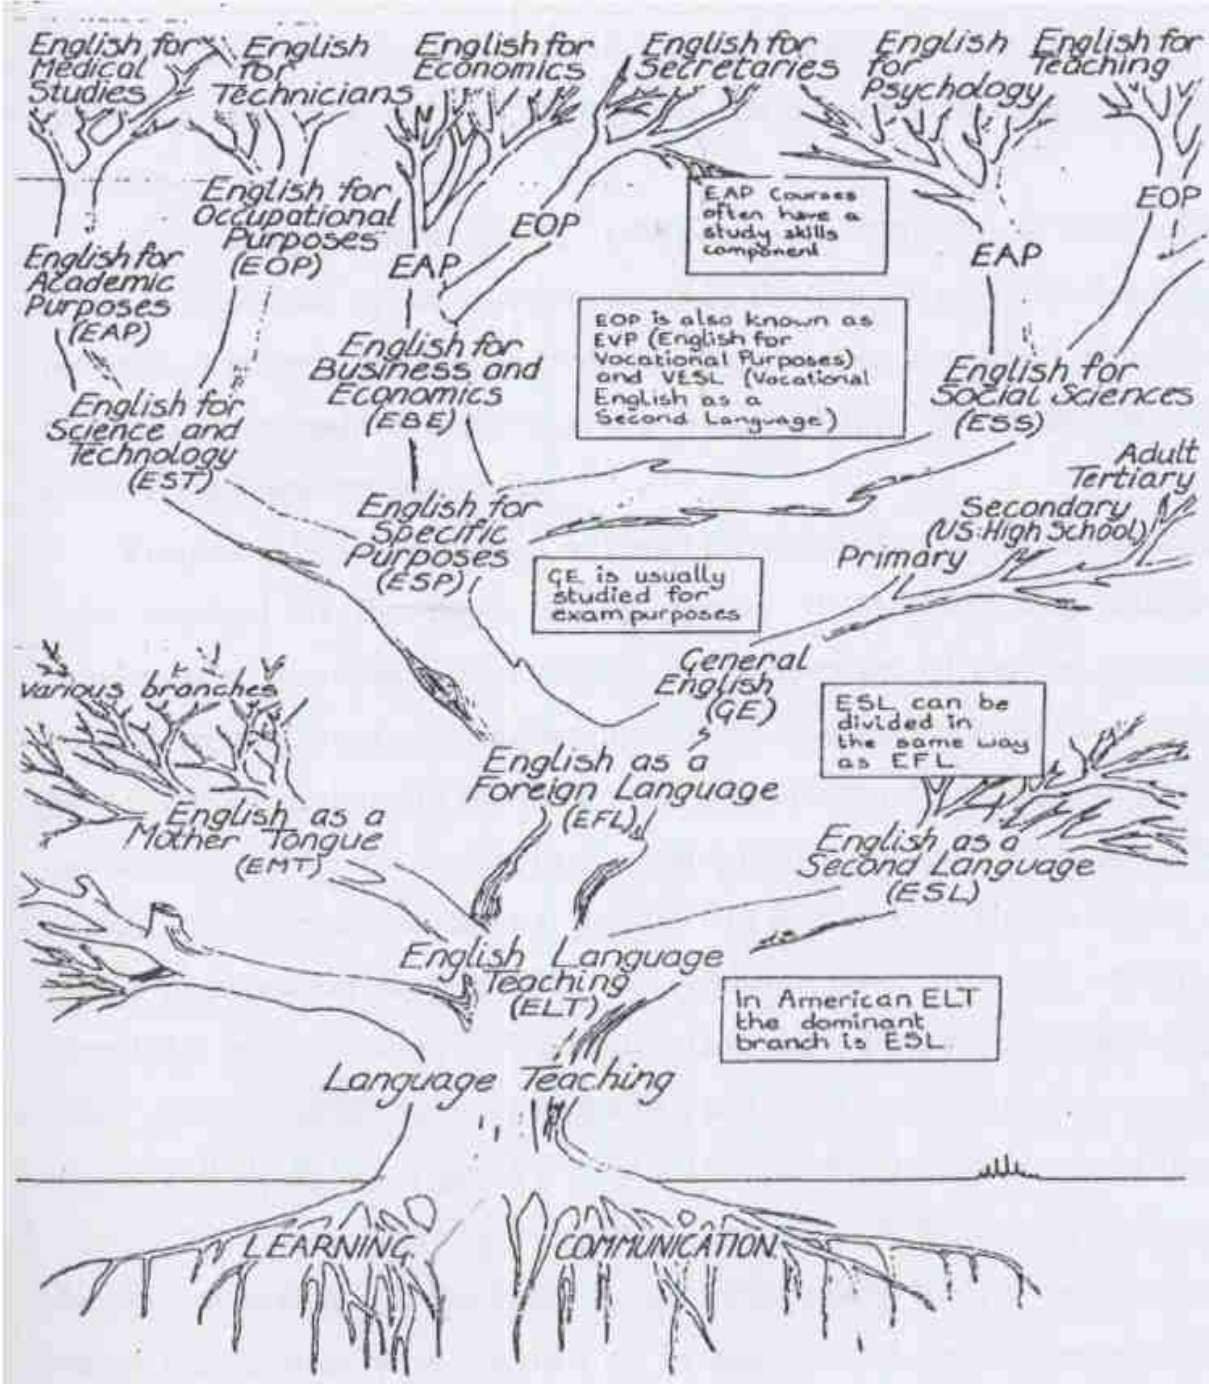 English for
Medical
Studies
English
for
Technicians
English for
Economics
English for
Secretaries
English
for
Psychology
English for
Teaching
English for
Occupational
Purposes
(EOP)
EOP
EAP Courses
often have a
study skills
component
EOP
English for
Academic
Purposes
(EAP)
EAP
EAP
EOP is also known as
EVP (English for
Vocational Purposes)
and VESL (Vocational
English as a
Second Language)
English for
Business and
Economics
(EBE)
English for
Social Sciences
(ESS)
English for
Science and
Technology
(EST)
Adult
Tertiary
Secondary
(US:High School)
Primary
English for
Specific
Purposes
(ESP)
GE is usually
studied for
exam purposes
General
English
(GE)
various branches
ESL can be
divided in
the same way
as EFL
English as a
Foreign Language
(EFL)
English as a
Mother Tongue
(EMT)
English as a
Second Language
(ESL)
English Language
Teaching
(ELT)
In American ELT
the dominant
branch is ESL.
Language Teaching
LEARNING
COMMUNICATION